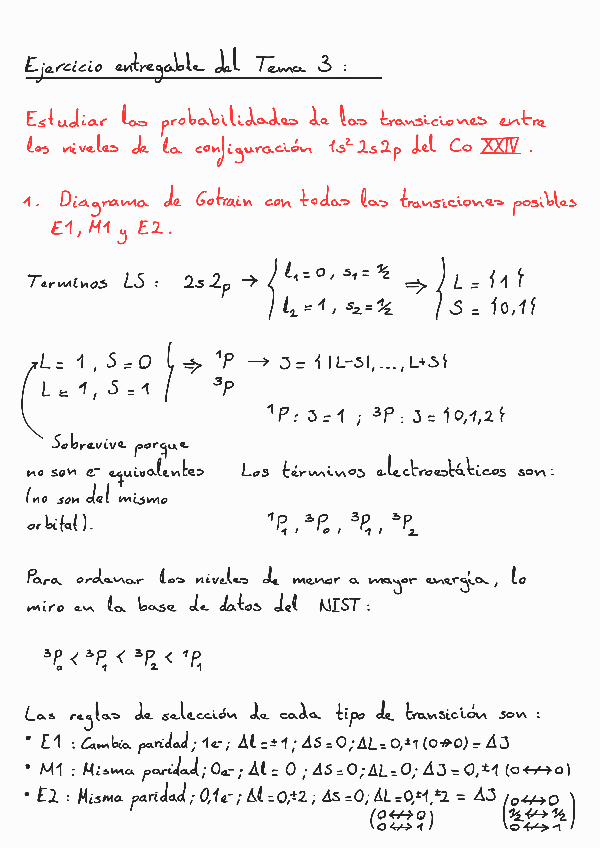 Ejercicio entregable del Tema 3 :
Estudiar las probabilidades de las transiciones entre
los niveles de la configuración 1s² 2s2p del Co XXIV .
1. Diagrama de Gotrain con todas las transiciones posibles
E1, M1 y E2.
Terminos LS : 2s2p → { l₁ = 0 , s₁ = ½ ⇒ { L = {1}
l₂ = 1 , s₂ = ½ S = {0,1}
L = 1 , S = 0 } ⇒ ¹P → J = {|L-S|,...,L+S}
L = 1 , S = 1 ³P
¹P : J = 1 ; ³P : J = {0,1,2}
Sobrevive porque
no son e⁻ equivalentes
(no son del mismo
orbital).
Los términos electroestáticos son:
¹P₁ , ³P₀ , ³P₁ , ³P₂
Para ordenar los niveles de menor a mayor energía, lo
miro en la base de datos del NIST :
³P₀ < ³P₁ < ³P₂ < ¹P₁
Las reglas de selección de cada tipo de transición son :
• E1 : Cambia paridad; 1e⁻; Δl = ±1 ; ΔS = 0; ΔL = 0,±1 (0↮0) = ΔJ
• M1 : Misma paridad; 0e⁻; Δl = 0 ; ΔS = 0; ΔL = 0; ΔJ = 0,±1 (0↮0)
• E2 : Misma paridad; 0,1e⁻; Δl = 0,±2 ; ΔS = 0; ΔL = 0,±1,±2 = ΔJ
(0↮0
0↮1)
(0↮0
½↮½
0↮1)